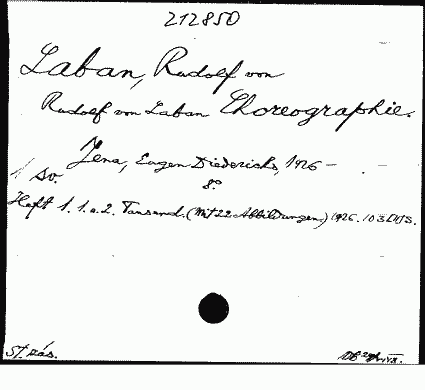 212850
Laban, Rudolf von
Rudolf von Laban Choreographie.
Jena, Eugen Diederichs, 1926 –
1 sv. 8°
Heft 1. 1. u. 2. Tausend. (Mit 22 Abbildungen.) 1926. 103
St. zás.